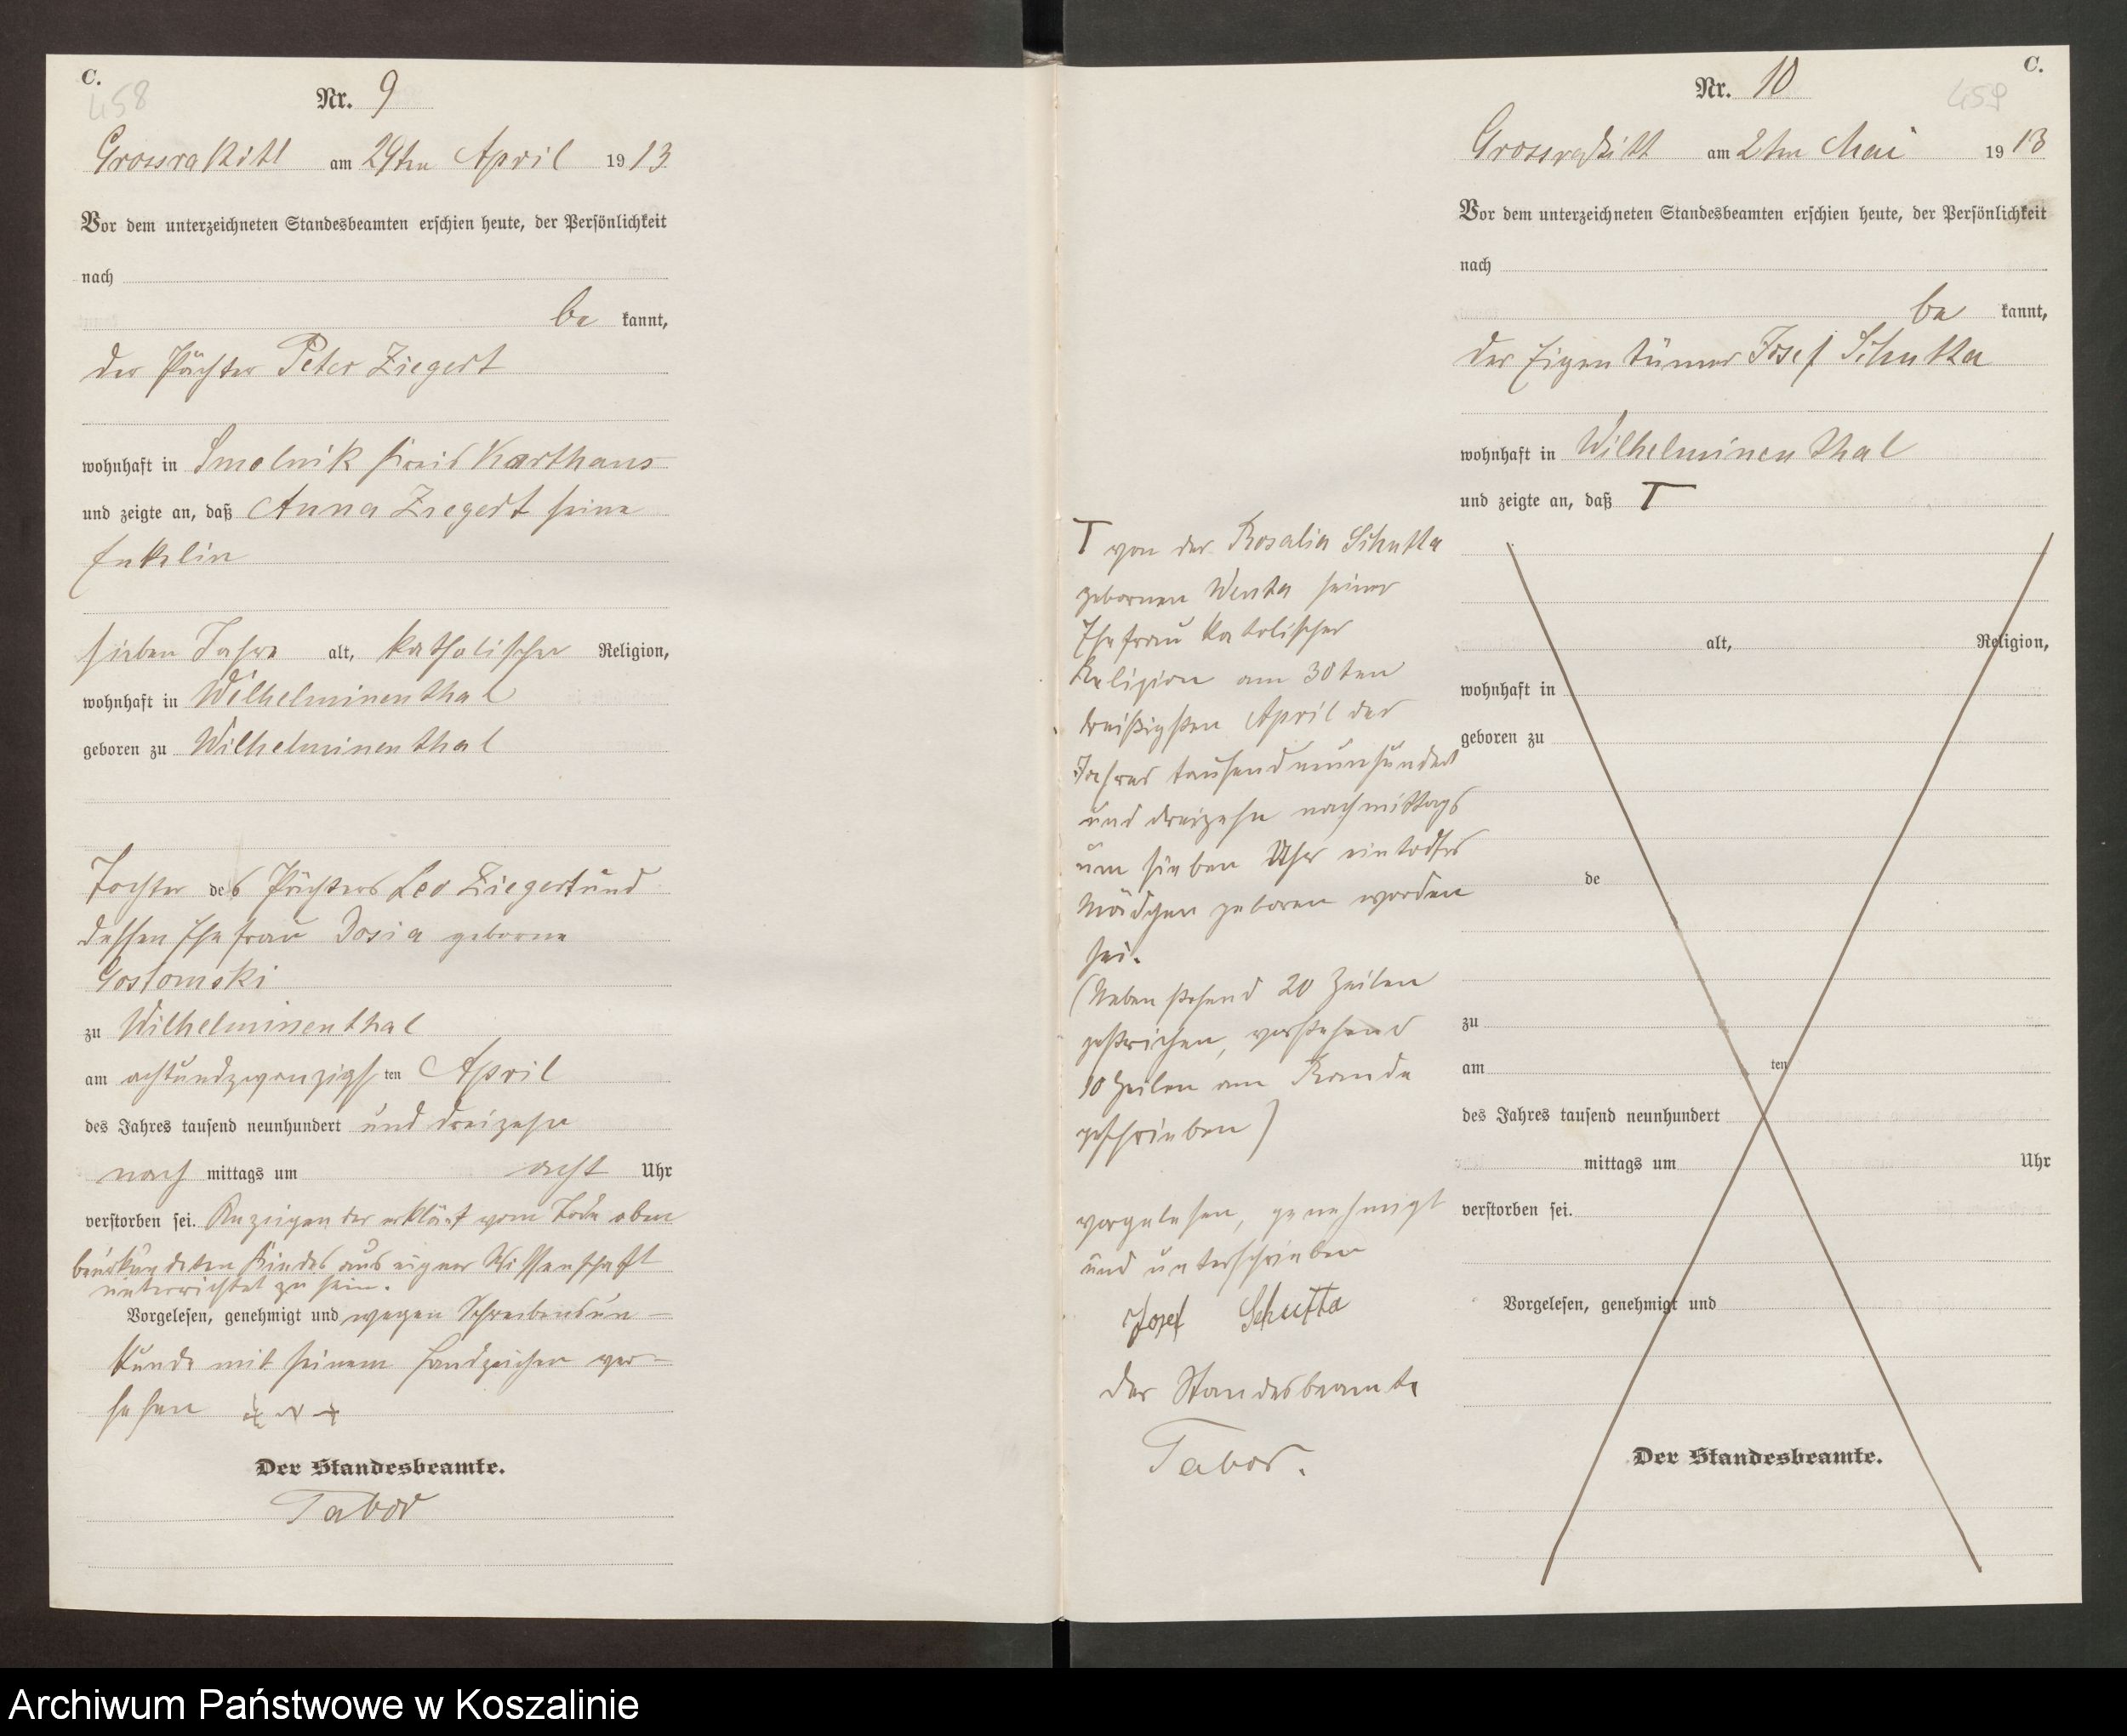 C.
458
Nr. 9
Grossrakitt am 29ten April 1913
Vor dem unterzeichneten Standesbeamten erschien heute, der Persönlichkeit
nach
be kannt,
der Pächter Peter Ziegert
wohnhaft in Smolnik Kreis Karthaus
und zeigte an, daß Anna Ziegert seine
Enkelin
sieben Jahre alt, katholischer Religion,
wohnhaft in Wilhelminenthal
geboren zu Wilhelminenthal
Tochter des Pächters Leo Ziegert und
dessen Ehefrau Rosia geborne
Gostomski
zu Wilhelminenthal
am achtundzwanzigsten April
des Jahres tausend neunhundert und dreizehn
nach mittags um acht Uhr
verstorben sei. Anzeigender erklärt vom Tode oben
beurkundeten Kindes aus eigner Wissenschaft
unterrichtet zu sein.
Vorgelesen, genehmigt und wegen Schreibensun-
kunde mit seinem Handzeichen ver-
sehen +++
Der Standesbeamte.
Tabor
C.
459
Nr. 10
Grossrakitt am 2ten Mai 1913
Vor dem unterzeichneten Standesbeamten erschien heute, der Persönlichkeit
nach
be kannt,
der Eigentümer Josef Schutta
wohnhaft in Wilhelminenthal
und zeigte an, daß T
T von der Rosalia Schutta
gebornen Wenta seiner
Ehefrau katolischer
Religion am 30ten
dreißigsten April des
Jahres tausendneunhundert
und dreizehn nachmittags
um sieben Uhr ein todtes
Mädchen geboren worden
sei.
(Nebenstehend 20 Zeilen
gestrichen, vorstehend
10 Zeilen am Rande
geschrieben)
vorgelesen, genehmigt
und unterschrieben
Josef Schutta
Der Standesbeamte
Tabor.
alt, Religion,
wohnhaft in
geboren zu
de
zu
am ten
des Jahres tausend neunhundert
mittags um Uhr
verstorben sei.
Vorgelesen, genehmigt und
Der Standesbeamte.
Archiwum Państwowe w Koszalinie